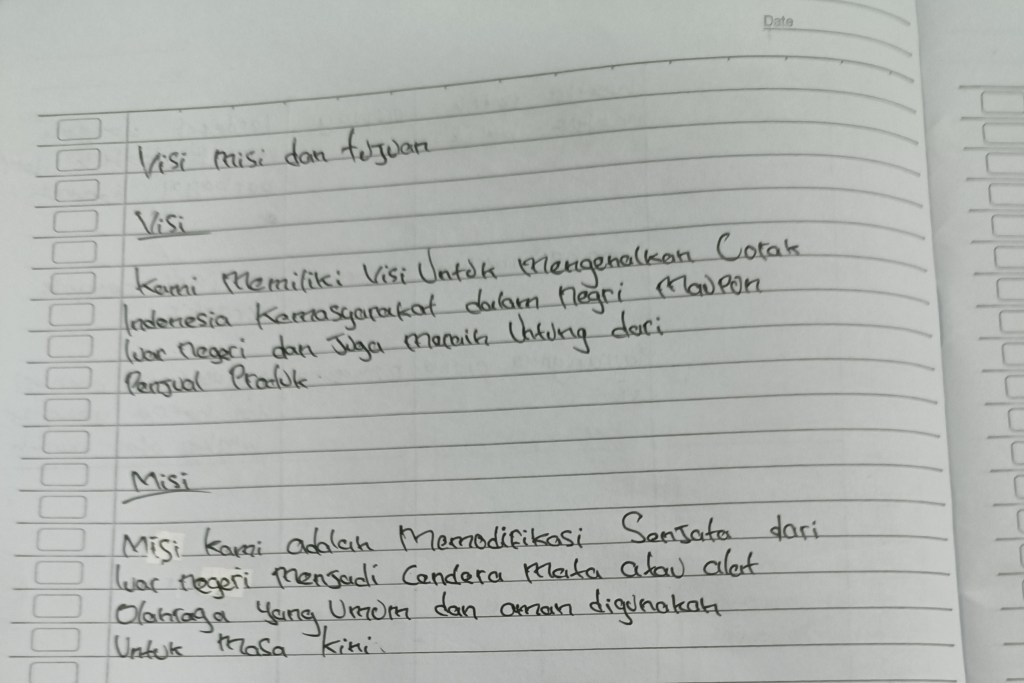 Date
Visi misi dan tujuan
Visi
Kami Memiliki Visi Untuk mengenalkan Corak
Indonesia Kemasyarakat dalam negri maupon
luar negeri dan Juga meraih Untung dari
Penjual Produk.
Misi
Misi kami adalah Memodifikasi Senjata dari
luar negeri menjadi Cendera mata atau alat
Olahraga yang Umum dan aman digunakan
Untuk masa kini.